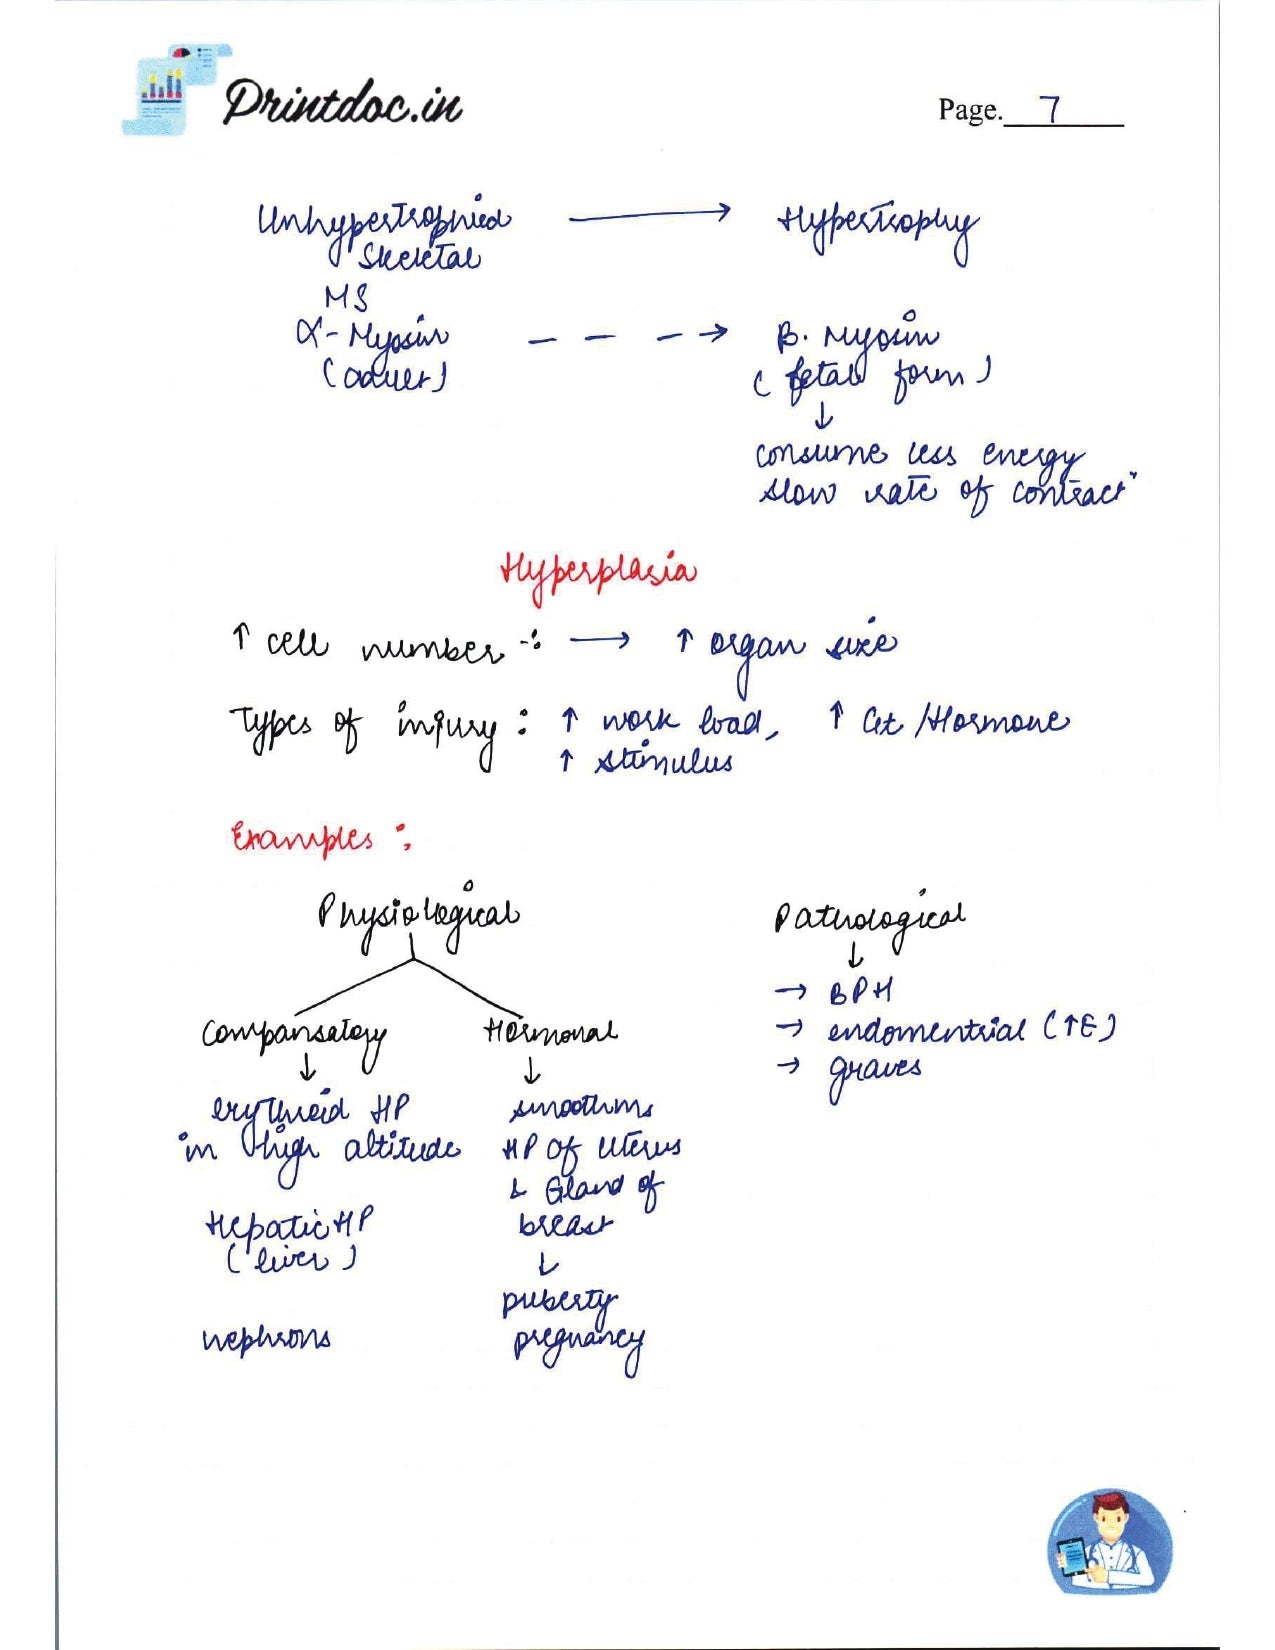 Printdoc.in
Page. 7
Unhypertrophied → Hypertrophy
skeletal
MS
α-Myosin - - - → β. Myosin
(adult) (fetal form)
↓
consume less energy
slow rate of contractⁿ
Hyperplasia
↑ cell number -: → ↑ organ size
Types of injury : ↑ work load, ↑ Gt /Hormone
↑ stimulus
Examples :
Physiological Pathological
↓
→ BPH
Compansatory Hormonal → endomentrial (↑E)
↓ ↓ → graves
erythroid HP smooth ms
in high altitude HP of Uterus
& Gland of
Hepatic HP breast
(liver) ↓
puberty
nephrons pregnancy